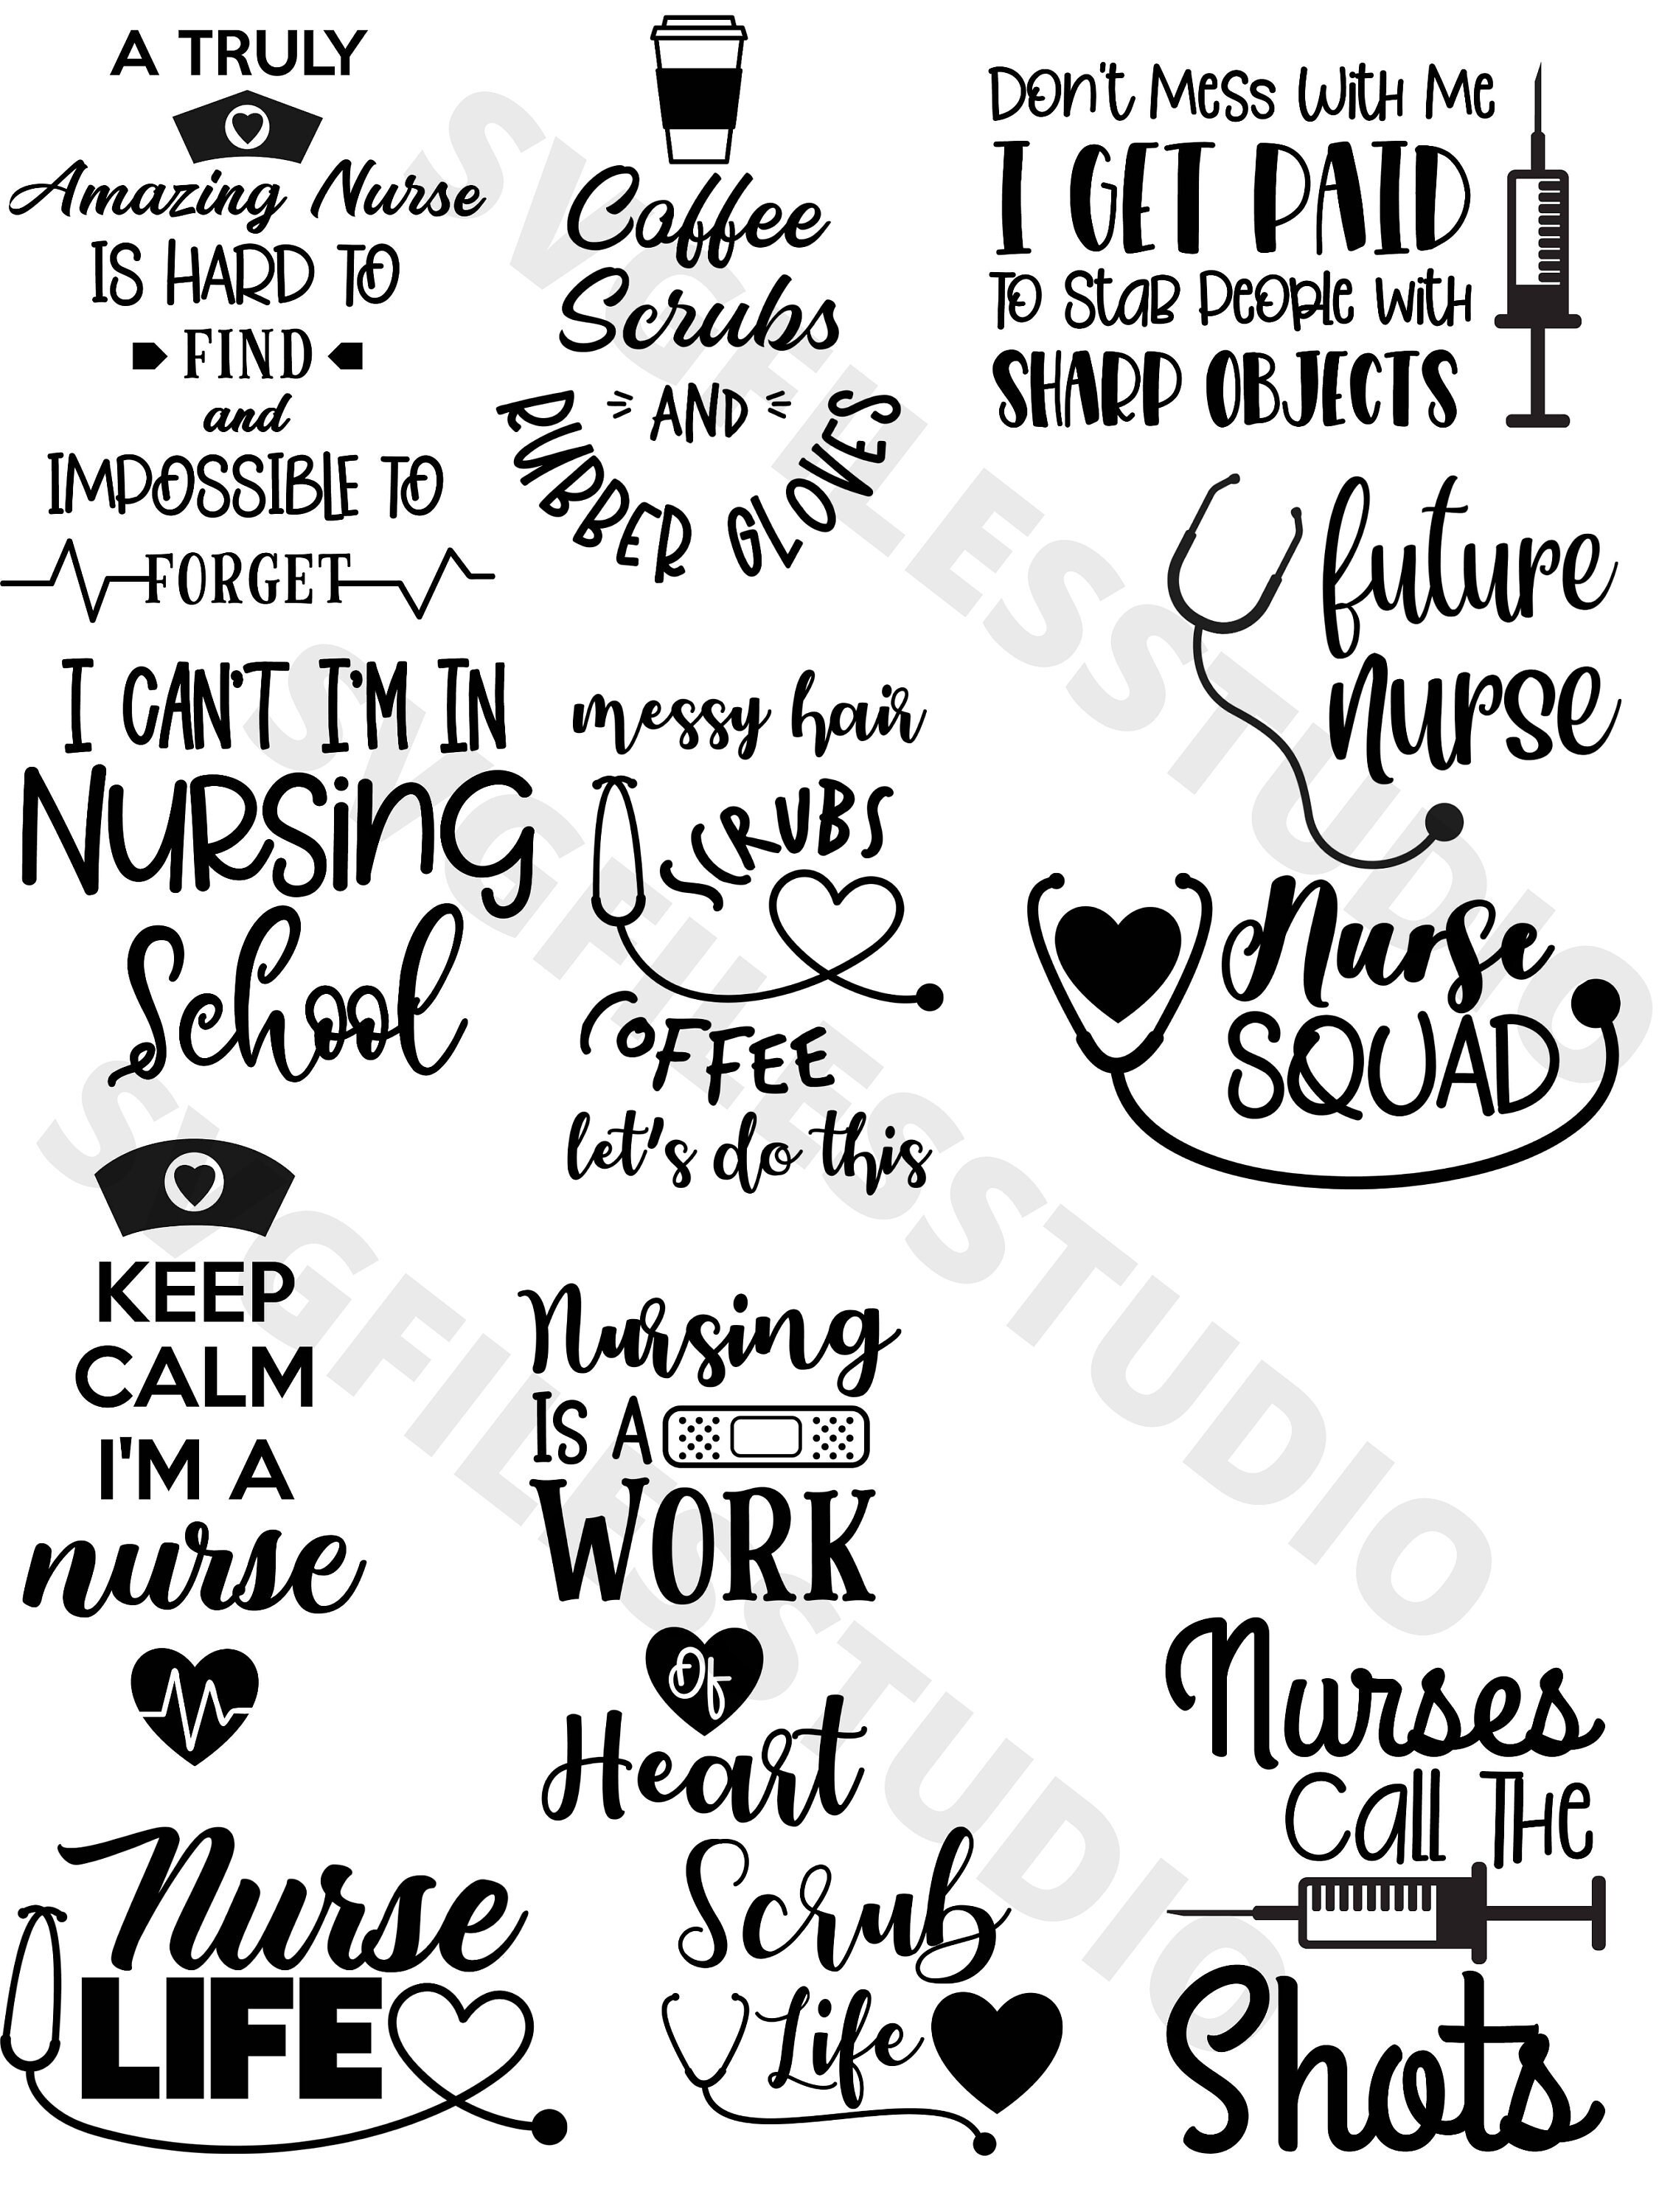 A TRULY
Amazing Nurse
IS HARD TO
FIND
and
IMPOSSIBLE TO
FORGET
Coffee
Scrubs
AND
RUBBER GLOVES
Don't Mess With Me
I GET PAID
To Stab People with
SHARP OBJECTS
future
nurse
I CAN'T I'M IN
NURSiNG
School
messy hair
SCRUBS
COFFEE
let's do this
Nurse
SQUAD
KEEP
CALM
I'M A
nurse
Nursing
IS A
WORK
Of
Heart
Nurses
Call The
Shots
Nurse
LIFE
Scrub
Life
SVGFILESSTUDIO
SVGFILESSTUDIO
SVGFILESSTUDIO